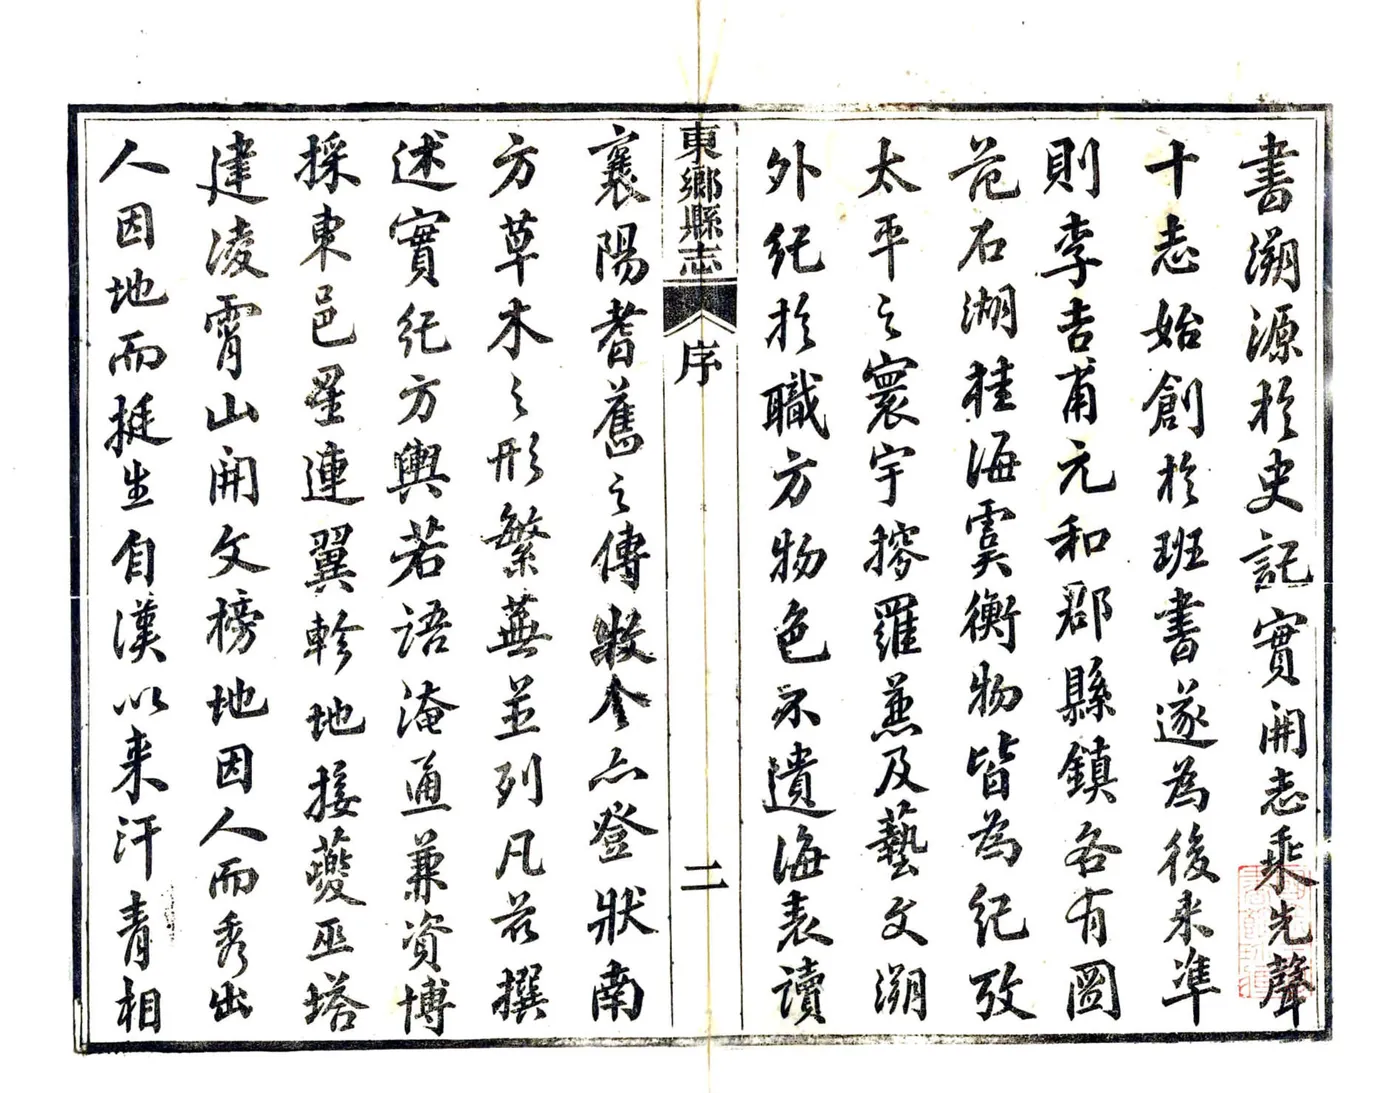 書溯源於史記實開志乘先聲
十志始創於班書遂為後来準
則李吉甫元和郡縣鎮各有圖
范石湖桂海虞衡物皆為紀攷
太平之寰宇搜羅兼及藝文溯
外紀於職方物色不遺海表讀
東鄉縣志
序
二
襄陽耆舊之傳牧令亦登狀南
方草木之形繁蕪並列凡兹撰
述實紀方輿若語淹通兼資博
採東邑星連翼軫地接夔巫塔
建凌霄山開文榜地因人而秀出
人因地而挺生自漢以来汗青相